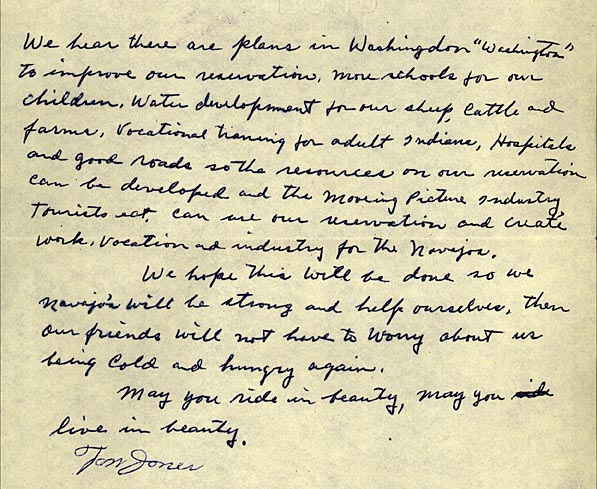 We hear there are plans in Washingdon "Washington"
to improve our reservation, more schools for our
children, Water development for our sheep, Cattle and
farms, Vocational training for adult Indians, Hospitals
and good roads so the resources on our reservation
can be developed and the Moving Picture Industry
Tourists ect. can use our reservation and create
work, Vocation and industry for the Navajos.
We hope this will be done so we
Navajo's will be strong and help ourselves, then
our friends will not have to worry about us
being Cold and hungry again.
May you ride in beauty, may you
live in beauty.
Tom Jones